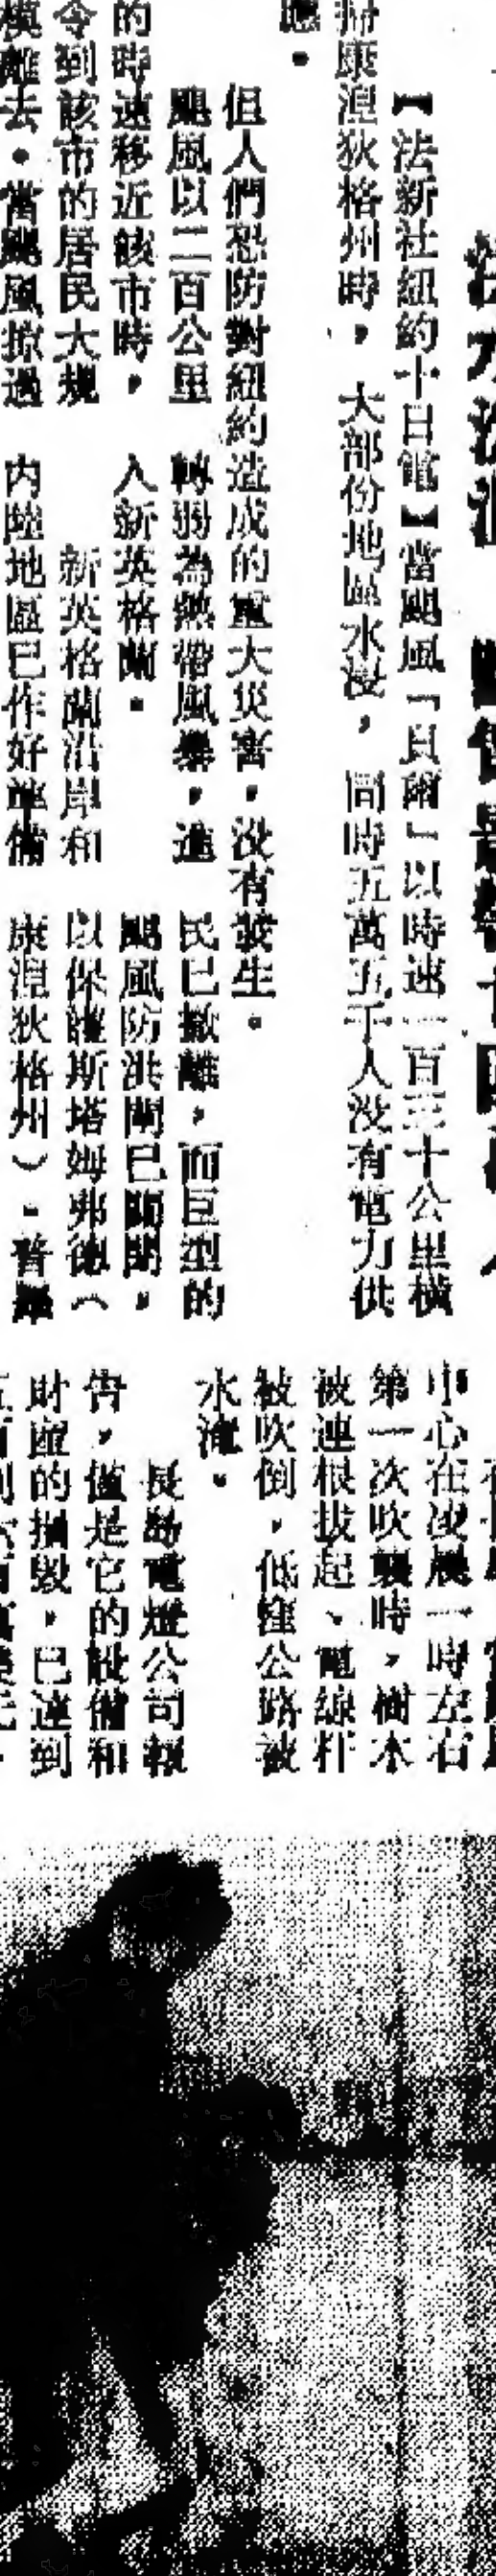 【法新社紐約十日電】當颶風「貝爾」以時速一百五十公里橫
掃康湼狄格州時，大部份地區水浸，同時五萬五千人沒有電力供
應。
但人們恐防對紐約造成的重大災害，沒有發生。
颶風以二百公里
的時速移近該市時，
令到該市的居民大規
模離去。當颶風掠過
轉弱為熱帶風暴，進
入新英格蘭。
新英格蘭沿岸和
內陸地區已作好準備
民已撤離，而巨型的
颶風防洪閘已關閉，
以保護斯塔姆弗德（
康湼狄格州）。
中心在凌晨一時左右
第一次吹襲時，樹木
被連根拔起、電線杆
被吹倒，低窪公路被
水淹。
長島電燈公司報
告，僅是它的設備和
財產的損毀，已達到